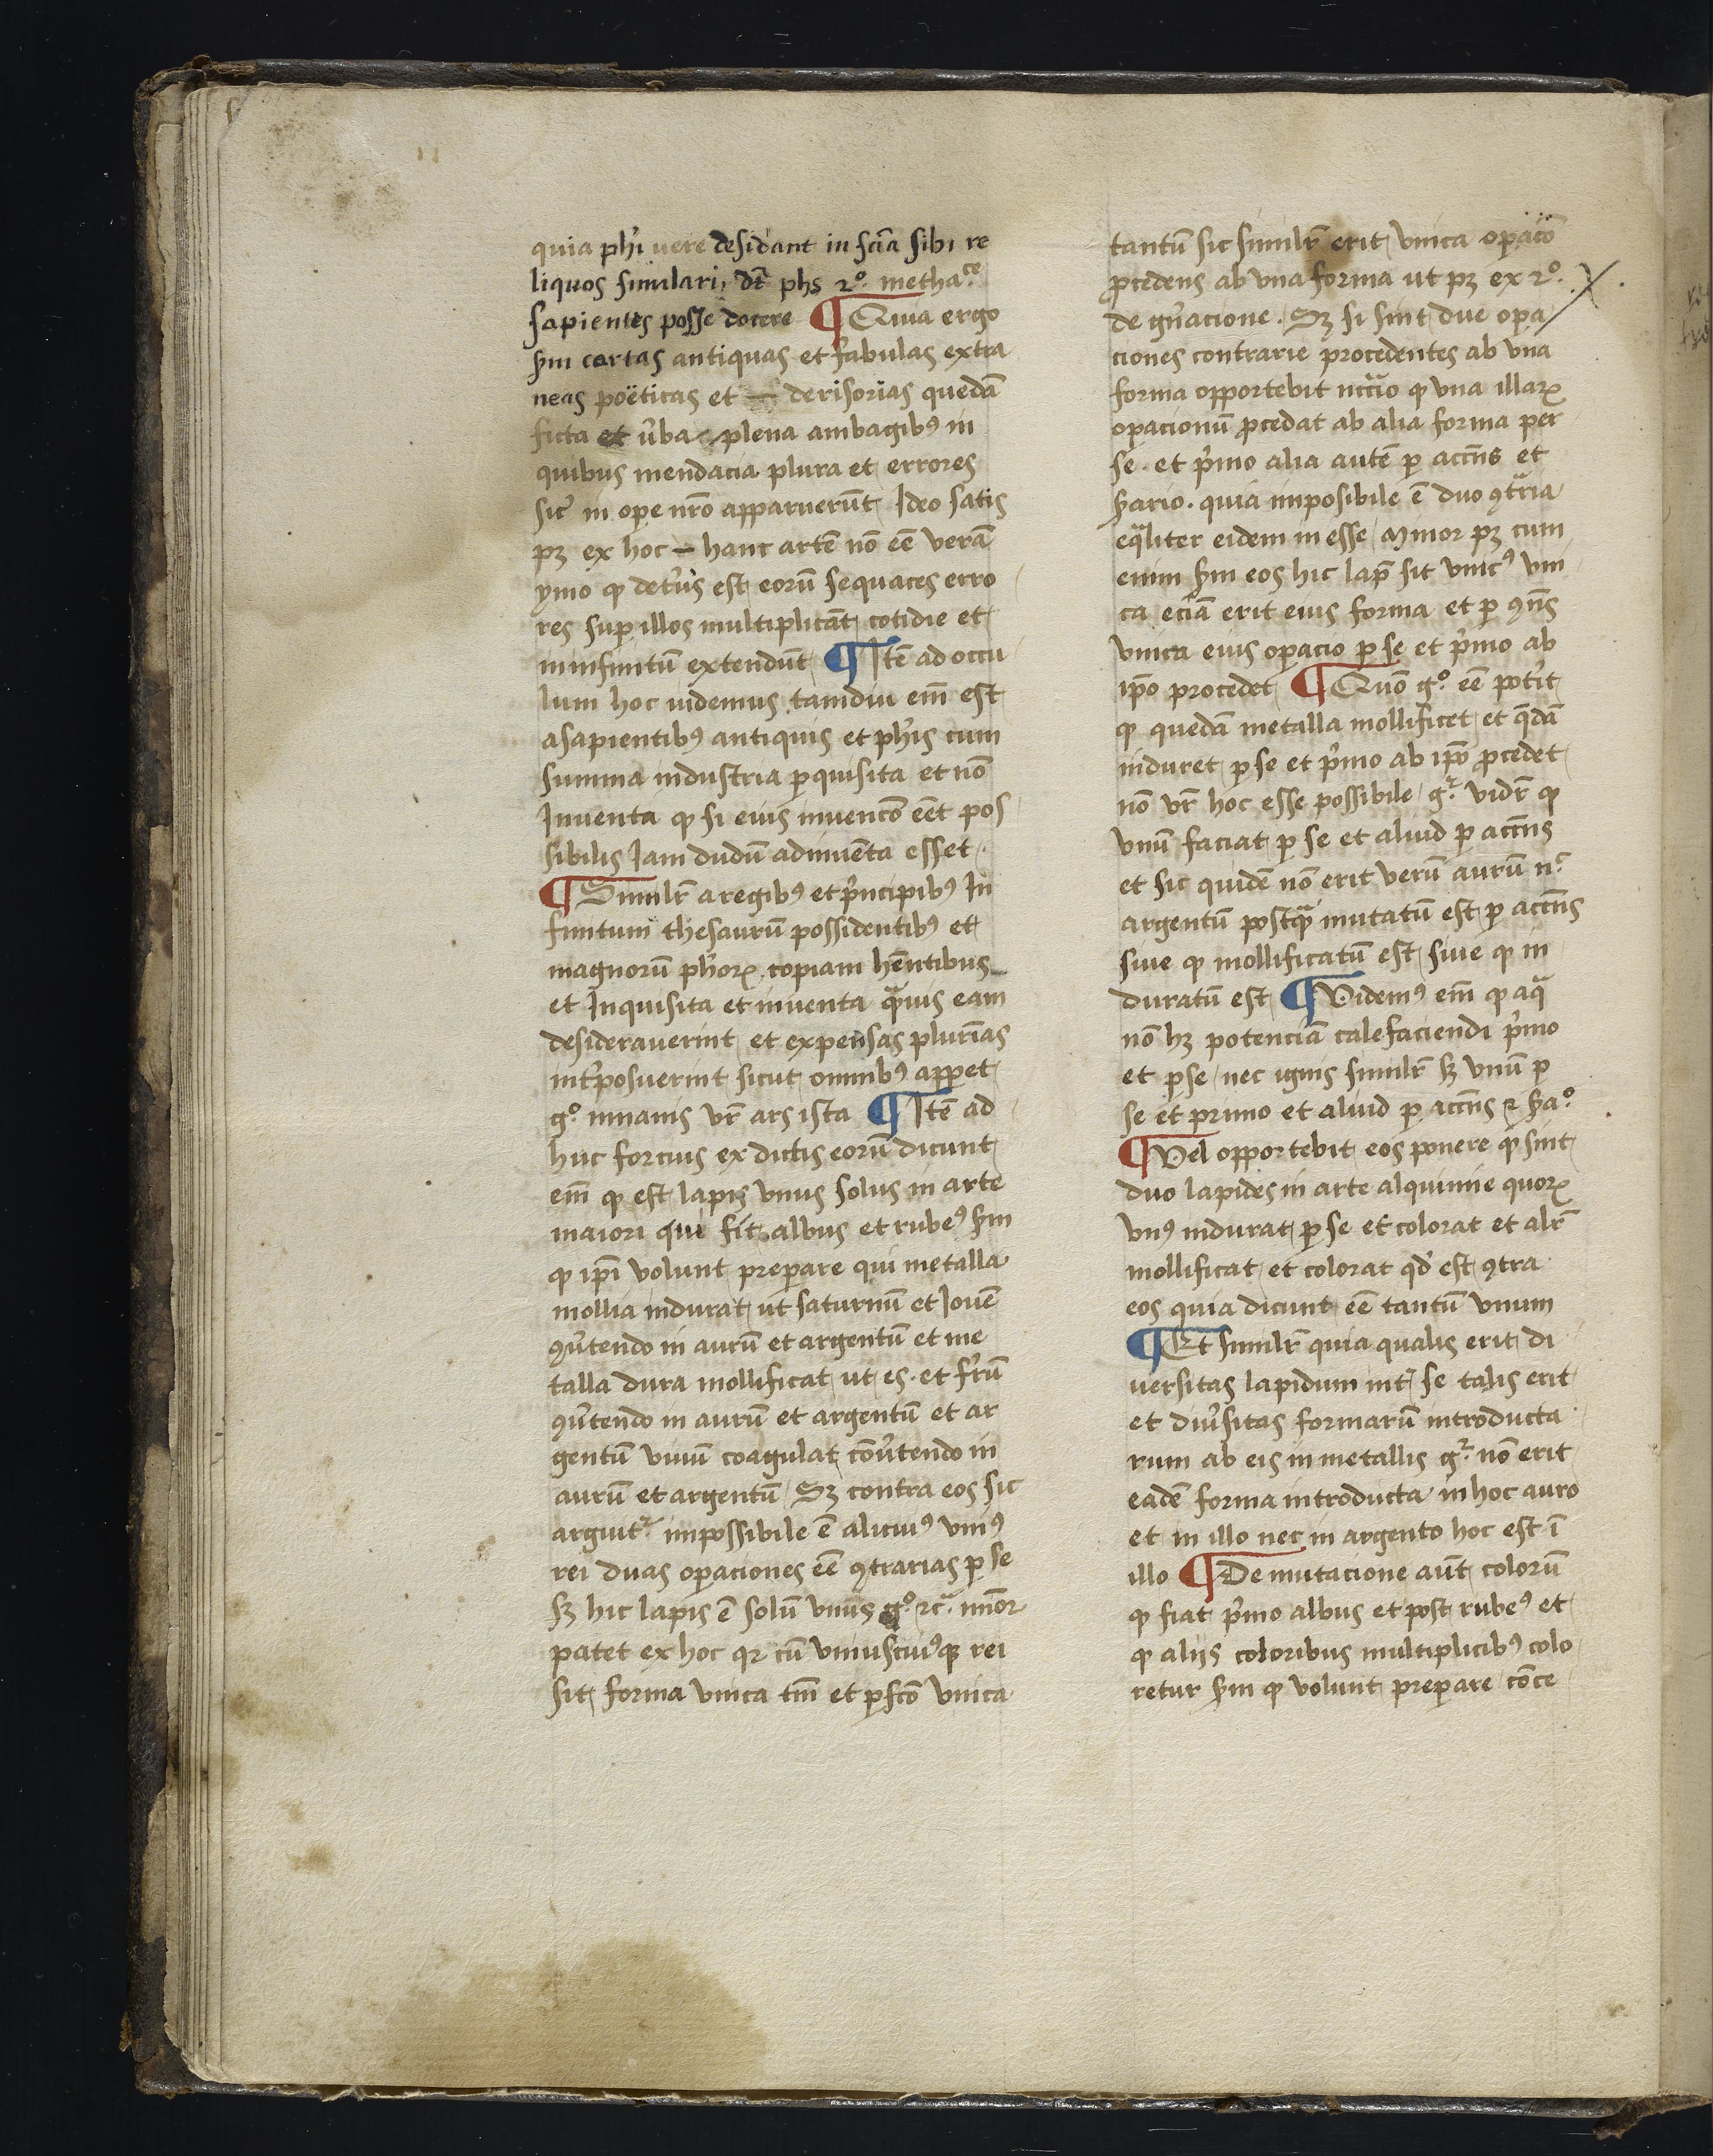 quia phi vere desidant in scīa sibi re
liquos simulari, dt phs 2º. methaᶜᵉ
sapientes posse docere ¶ Quia ergo
sm cartas antiquas et fabulas extra
neas poëticas et — derisorias quedā
ficta et ūba plena ambagibꝰ in
quibus mendacia plura et errores
sic in ope nr̄o apparuerūt Ideo satis
pꝫ ex hoc — hanc artē nō eē verā
ymo ꝙ det'ꝰ est eorū sequaces erro
res suꝑ illos multiplicāt cotidie et
in infinitū extendūt ¶ Itē ad occu
lum hoc videmus tamdiu em̄ est
a sapientibꝰ antiquis et phis cum
summa industria ꝑquisita et nō
Inventa ꝙ si eius invenco eēt pos
sibilis Iam dudū adinvēta esset
¶ Similr̄ a regibꝰ et pͥncipibꝰ In
finitum thesaurū possidentibꝰ et
magnorū phoꝝ copiam hēntibus
et Inquisita et inventa qᵃvis eam
desideraverint et expensas plurīas
int'posuerint sicut omnibꝰ apparet
gº. innanis vr̄ ars ista ¶ Itē ad
huc forcius ex dictis eorū dicunt
em̄ ꝙ est lapis vnus solus in arte
maiori qui fit albus et rubeꝰ sm
ꝙ ip̄i volunt preparare qui metalla
mollia indurat ut saturnū et Iovē
ꝯv̄tendo in aurū et argentū et me
talla dura mollificat ut es. et fr̄ū
ꝯv̄tendo in aurū et argentū et ar
gentū vivū coagulat cōv̄tendo in
aurū et argentū Sꝫ contra eos sic
arguit᷑ impossibile ē alicuiꝰ vniꝰ
rei duas oꝑaciones eē ꝯtrarias ꝑ se
sꝫ hic lapis ē solū vnus gº. ⁊cᵃ. minor
patet ex hoc qꝛ cū vniuscuiꝰqꝫ rei
sit forma vnica tm̄ et ꝑfcō vnica
tantū sic similr̄ erit vnica oꝑacō
ꝓcedens ab vna forma ut pꝫ ex 2º.
de gn̄acione. Sꝫ si sint due opa
ciones contrarie procedentes ab vna
forma opportebit nccᵃio ꝙ vna illaꝝ
oꝑacionū ꝓcedat ab alia forma per
se. et pͥmo alia autē ꝑ accn̄s et
sᵃario. quia imposibile ē duo ꝯtᵃria
eqᵃliter eidem in esse minor pꝫ cum
enim sm eos hic lap̄ sit vnicꝰ vni
ca eciā erit eius forma et ꝑ ꝯn̄s
vnica eius oꝑacio ꝑ se et pͥmo ab
ip̄o procedet ¶ Quō gº. eē pot'it
ꝙ quedā metalla mollificet et qᵃdā
induret ꝑ se et pͥmo ab ip̄o ꝓcedet
nō vr̄ hoc esse possibile g᷑. vidr̄ ꝙ
vnū faciat ꝑ se et aliud ꝑ accn̄s
et sic quidē nō erit verū aurū nᶜ
argentū postqᵃ mutatū est ꝑ accn̄s
sive ꝙ mollificatū est sive ꝙ in
duratū est ¶ Videmꝰ em̄ ꝙ aqᵃ
nō hꝫ potenciā calefaciendi pͥmo
et ꝑ se nec ignis similr̄ sꝫ vnū ꝑ
se et primo et aliud ꝑ accn̄s ⁊ sᵃº.
¶ Vel opportebit eos ponere ꝙ sint
duo lapides in arte alquimie quoꝝ
vnꝰ indurat ꝑ se et colorat et alr̄
mollificat et colorat qd' est ꝯtra
eos quia dicunt eē tantū vnum
¶ Et similr̄ quia qualis erit di
versitas lapidum int' se talis erit
et div̄sitas formarū introducta
rum ab eis in metallis g᷑. nō erit
eadē forma introducta in hoc auro
et in illo nec in argento hoc est ī
illo ¶ De mutacione aūt colorū
ꝙ fiat pͥmo albus et post rubeꝰ et
ꝙ aliis coloribus multiplicibꝰ colo
retur sm ꝙ volunt preparare cōce